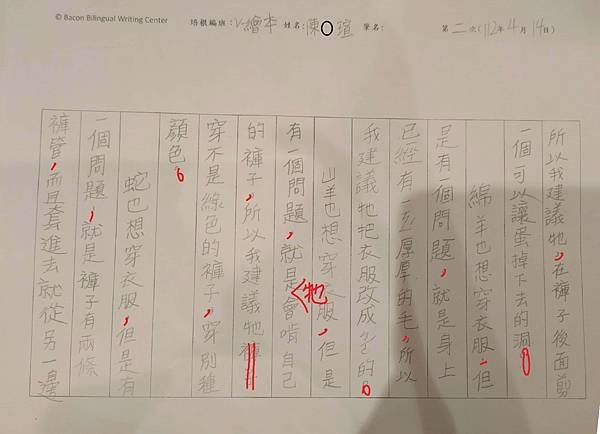 © Bacon Bilingual Writing Center 培根編班：V-繪本 姓名：陳〇瑄 筆名： 第二次(112年4月14日)
所以我建議牠，在褲子後面剪
一個可以讓蛋掉下去的洞。
綿羊也想穿衣服，但
是有一個問題，就是身上
已經有厚厚的毛，所以
我建議牠把衣服改成的。
山羊也想穿衣服，但是
有一個問題，就是牠會啃自己
的褲子，所以我建議牠
穿不是綠色的褲子，穿別種
顏色。
蛇也想穿衣服，但是有
一個問題，就是褲子有兩條
褲管，而套進去就從另一邊